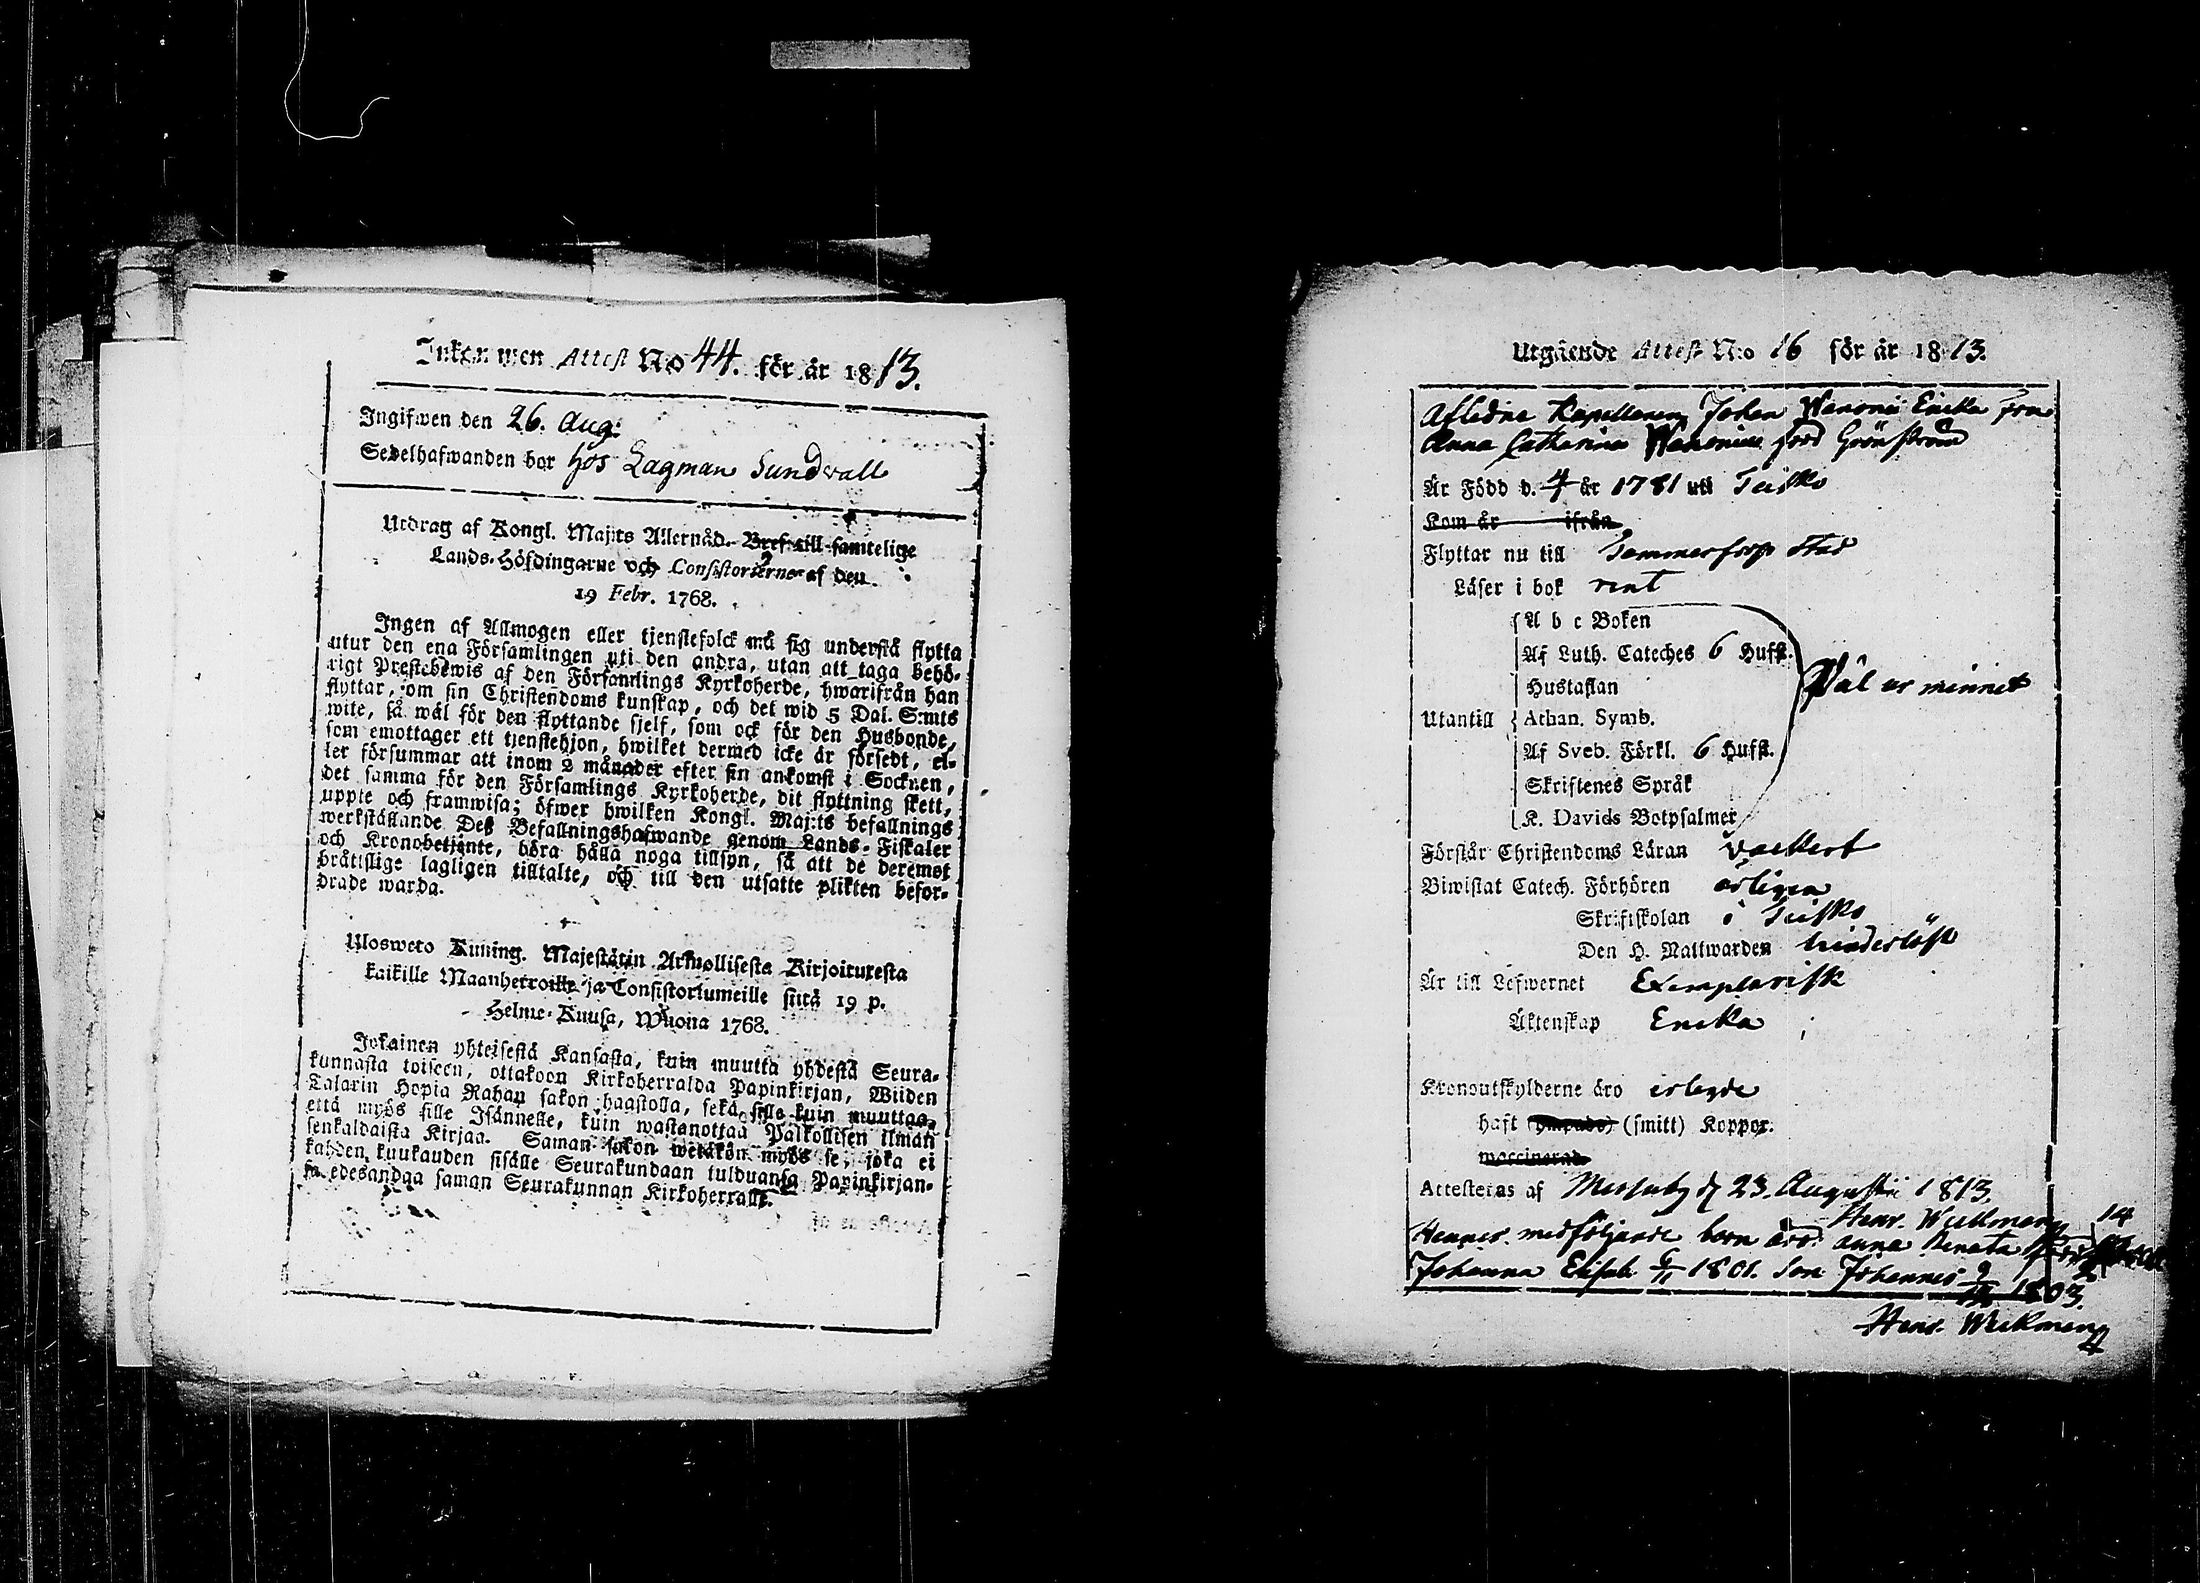 Inkommen Attest No 44. för år 1813.
Ingifwen den 26. Aug:
Sedelhafwanden bor hos Lagman Sundvall
Utdrag af Kongl. Maj:ts Allernåd. Bref till samtelige
Lands-Höfdingarne och Consistorierne af den
19 Febr. 1768.
Ingen af Allmogen eller tjenstefolck må sig understå flytta
utur den ena Församlingen uti den andra, utan att taga behö-
rigt Prestebewis af den Församlings Kyrkoherde, hwarifrån han
flyttar, om sin Christendoms kunskap, och det wid 5 Dal. S:mts
wite, så wäl för den flyttande sjelf, som ock för den Husbonde,
som emottager ett tjenstehjon, hwilket dermed icke är försedt, el-
ler försummar att inom 2 månader efter sin ankomst i Socknen,
det samma för den Församlings Kyrkoherde, dit flyttning skett,
uppte och framwisa; öfwer hwilken Kongl. Maj:ts befallnings
werkställande Deß Befallningshafwande genom Lands-Fiskaler
och Kronobetjente, böra hålla noga tillsyn, så att de deremot
brättslige lagligen tilltalte, och till den utsatte plikten befor-
drade warda.
Ulosweto Kuning. Majestätin Armollisesta Kirjoituxesta
kaikille Maanherroille ja Consistoriumeille siitä 19 p.
Helme-Kuusa, Wuona 1768.
Jokainen yhteisestä Kansasta, kuin muutta yhdestä Seura-
kunnasta toiseen, ottakoon Kirkoherralda Papinkirjan, Wiiden
Talarin Hopia Rahan sakon haastolla, sekä sille kuin muuttaa,
että myös sille Isännelle, kuin wastanottaa Palkollisen ilman
senkaldaista Kirjaa. Saman sakon wetäkön myös se, joka ei
kahden kuukauden sisälle Seurakundaan tulduansa Papinkirjan-
sa edesandaa saman Seurakunnan Kirkoherralle.
Utgående Attest N:o 16 för år 1813.
Aflidne Kapellanen Johan Wenonii Encka Fru
Anna Catharina Wenonius född Grönström
Är Född d. 4 år 1781 uti Teisko
Kom år ifrån
Flyttar nu till Tammerfors Stad
Läser i bok rent
A b c Boken
Af Luth. Cateches 6 Hufst.
Hustaflan
Wäl ur minnet
Utantill Athan. Symb.
Af Sveb. Förkl. 6 Hufst.
Skriftenes Språk
K. Davids Botpsalmer
Förstår Christendoms Läran vackert
Biwistat Catech. Förhören årligen
Skriftskolan i Teisko
Den H. Nattwarden hinderlöst
Är till Lefwernet Exemplarisk
Äktenskap Encka
Kronoutskylderne äro erlagde
haft (ympade) (smitt) Koppor.
waccinerad
Attesteras af Messuby d 23 Augustii 1813.
Henr. Wellman
Hennes medföljande barn äro: Anna Renata
Johanna Elisab 6/11 1801. Son Johannes 9/12 1803.
Henr. Wellman